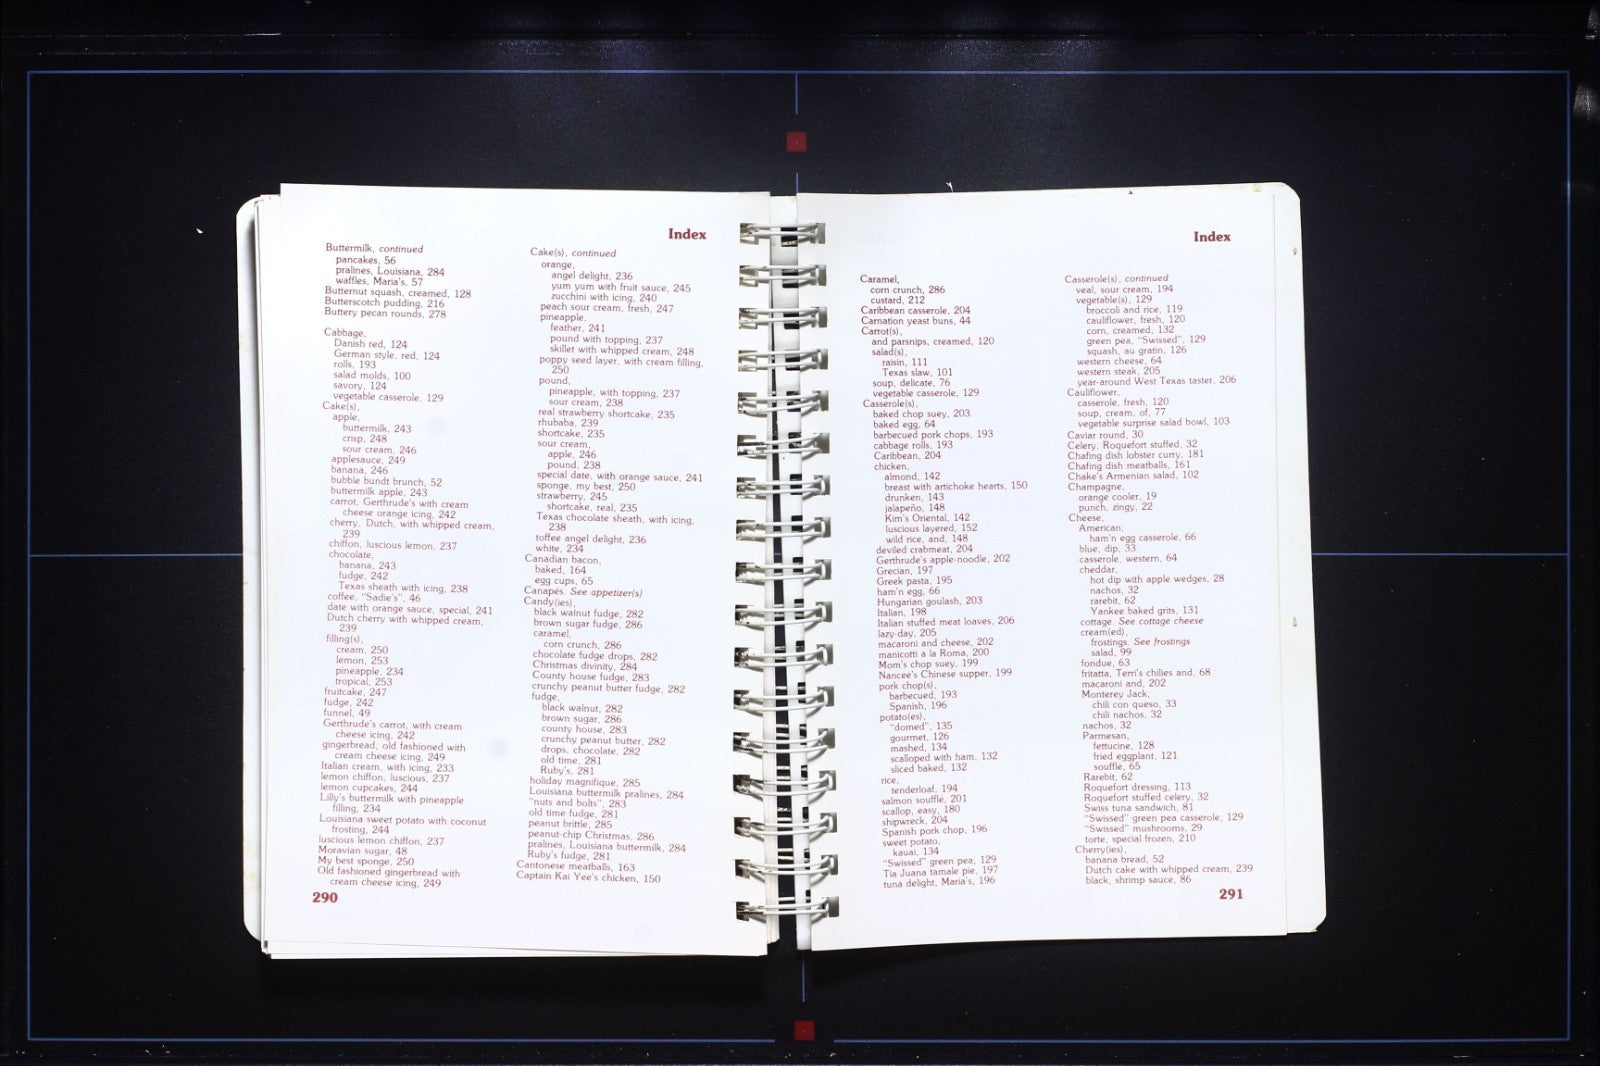 Index
Buttermilk, continued
pancakes, 56
pralines, Louisiana, 284
waffles, Maria's, 57
Butternut squash, creamed, 128
Butterscotch pudding, 216
Buttery pecan rounds, 278
Cabbage,
Danish red, 124
German style, red, 124
rolls, 193
salad molds, 100
savory, 124
vegetable casserole, 129
Cake(s),
apple,
buttermilk, 243
crisp, 248
sour cream, 246
applesauce, 249
banana, 246
bubble bundt brunch, 52
buttermilk apple, 243
carrot, Gerthrude's with cream
cheese orange icing, 242
cherry, Dutch, with whipped cream,
239
chiffon, luscious lemon, 237
chocolate,
banana, 243
fudge, 242
Texas sheath with icing, 238
coffee, "Sadie's", 46
date with orange sauce, special, 241
Dutch cherry with whipped cream,
239
filling(s),
cream, 250
lemon, 253
pineapple, 234
tropical, 253
fruitcake, 247
fudge, 242
funnel, 49
Gerthrude's carrot, with cream
cheese icing, 242
gingerbread, old fashioned with
cream cheese icing, 249
Italian cream, with icing, 233
lemon chiffon, luscious, 237
lemon cupcakes, 244
Lilly's buttermilk with pineapple
filling, 234
Louisiana sweet potato with coconut
frosting, 244
luscious lemon chiffon, 237
Moravian sugar, 48
My best sponge, 250
Old fashioned gingerbread with
cream cheese icing, 249
Cake(s), continued
orange,
angel delight, 236
yum yum with fruit sauce, 245
zucchini with icing, 240
peach sour cream, fresh, 247
pineapple,
feather, 241
pound with topping, 237
skillet with whipped cream, 248
poppy seed layer, with cream filling,
250
pound,
pineapple, with topping, 237
sour cream, 238
real strawberry shortcake, 235
rhubaba, 239
shortcake, 235
sour cream,
apple, 246
pound, 238
special date, with orange sauce, 241
sponge, my best, 250
strawberry, 245
shortcake, real, 235
Texas chocolate sheath, with icing,
238
toffee angel delight, 236
white, 234
Canadian bacon,
baked, 164
egg cups, 65
Canapés. See appetizer(s)
Candy(ies),
black walnut fudge, 282
brown sugar fudge, 286
caramel,
corn crunch, 286
chocolate fudge drops, 282
Christmas divinity, 284
County house fudge, 283
crunchy peanut butter fudge, 282
fudge,
black walnut, 282
brown sugar, 286
county house, 283
crunchy peanut butter, 282
drops, chocolate, 282
old time, 281
Ruby's, 281
holiday magnifique, 285
Louisiana buttermilk pralines, 284
"nuts and bolts", 283
old time fudge, 281
peanut brittle, 285
peanut-chip Christmas, 286
pralines, Louisiana buttermilk, 284
Ruby's fudge, 281
Cantonese meatballs, 163
Captain Kai Yee's chicken, 150
290
Index
Caramel,
corn crunch, 286
custard, 212
Caribbean casserole, 204
Carnation yeast buns, 44
Carrot(s),
and parsnips, creamed, 120
salad(s),
raisin, 111
Texas slaw, 101
soup, delicate, 76
vegetable casserole, 129
Casserole(s),
baked chop suey, 203
baked egg, 64
barbecued pork chops, 193
cabbage rolls, 193
Caribbean, 204
chicken,
almond, 142
breast with artichoke hearts, 150
drunken, 143
jalapeño, 148
Kim's Oriental, 142
luscious layered, 152
wild rice, and, 148
deviled crabmeat, 204
Gerthrude's apple-noodle, 202
Grecian, 197
Greek pasta, 195
ham'n egg, 66
Hungarian goulash, 203
Italian, 198
Italian stuffed meat loaves, 206
lazy-day, 205
macaroni and cheese, 202
manicotti a la Roma, 200
Mom's chop suey, 199
Nancee's Chinese supper, 199
pork chop(s),
barbecued, 193
Spanish, 196
potato(es),
"domed", 135
gourmet, 126
mashed, 134
scalloped with ham, 132
sliced baked, 132
rice,
tenderloaf, 194
salmon soufflé, 201
scallop, easy, 180
shipwreck, 204
Spanish pork chop, 196
sweet potato,
kauai, 134
"Swissed" green pea, 129
Tia Juana tamale pie, 197
tuna delight, Maria's, 196
Casserole(s), continued
veal, sour cream, 194
vegetable(s), 129
broccoli and rice, 119
cauliflower, fresh, 120
corn, creamed, 132
green pea, "Swissed", 129
squash, au gratin, 126
western cheese, 64
western steak, 205
year-around West Texas taster, 206
Cauliflower,
casserole, fresh, 120
soup, cream, of, 77
vegetable surprise salad bowl, 103
Caviar round, 30
Celery, Roquefort stuffed, 32
Chafing dish lobster curry, 181
Chafing dish meatballs, 161
Chake's Armenian salad, 102
Champagne,
orange cooler, 19
punch, zingy, 22
Cheese,
American,
ham'n egg casserole, 66
blue, dip, 33
casserole, western, 64
cheddar,
hot dip with apple wedges, 28
nachos, 32
rarebit, 62
Yankee baked grits, 131
cottage. See cottage cheese
cream(ed),
frostings. See frostings
salad, 99
fondue, 63
fritatta, Terri's chilies and, 68
macaroni and, 202
Monterey Jack,
chili con queso, 33
chili nachos, 32
nachos, 32
Parmesan,
fettucine, 128
fried eggplant, 121
souffle, 65
Rarebit, 62
Roquefort dressing, 113
Roquefort stuffed celery, 32
Swiss tuna sandwich, 81
"Swissed" green pea casserole, 129
"Swissed" mushrooms, 29
torte, special frozen, 210
Cherry(ies),
banana bread, 52
Dutch cake with whipped cream, 239
black, shrimp sauce, 86
291